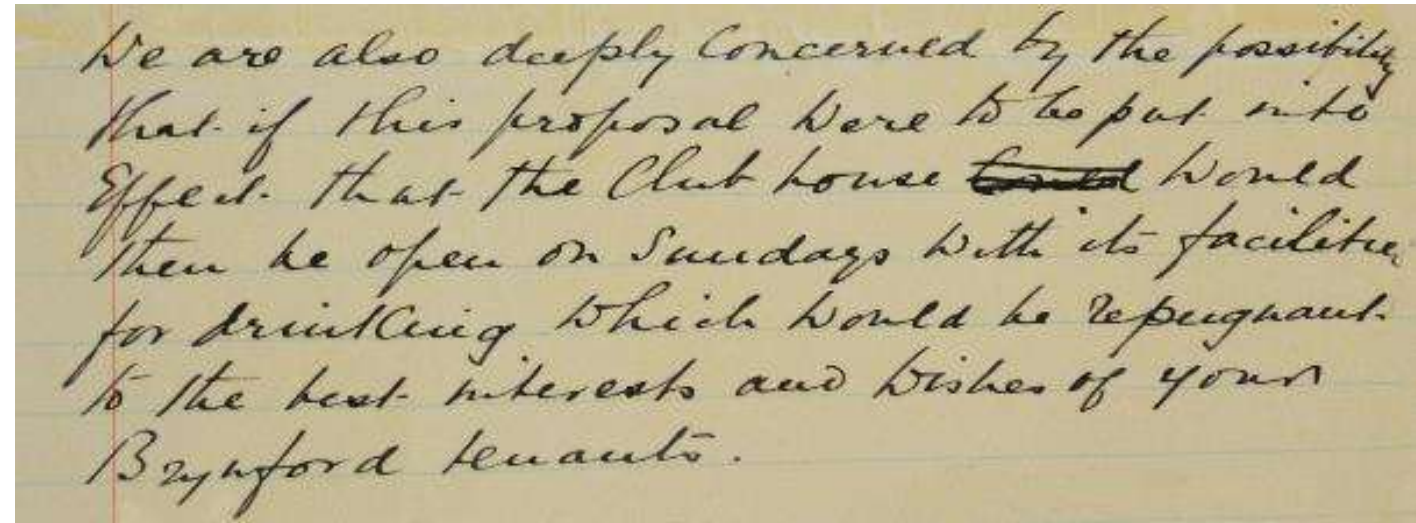 We are also deeply Concerned by the possibility
that if this proposal Were to be put into
Effect that the Club house Would
then be open on Sundays With its facilities
for drinking Which Would be repugnant
to the best interests and Wishes of your
Brynford tenants.